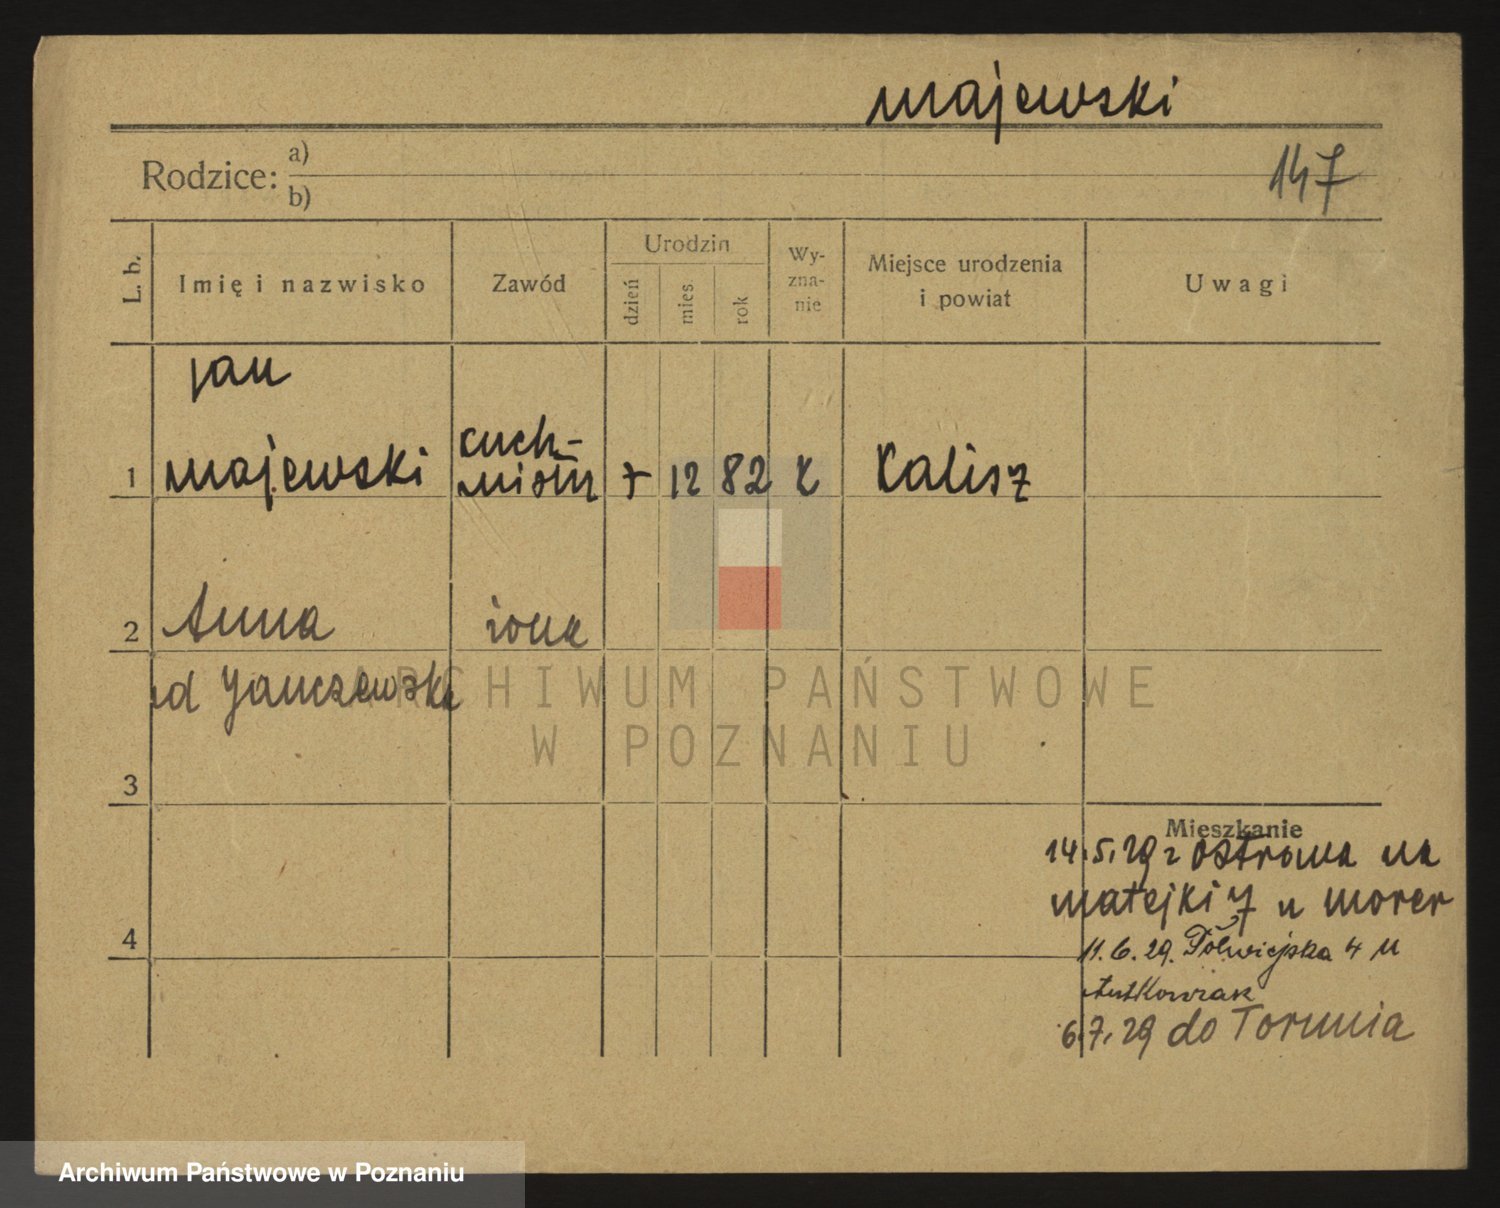 majewski
147
Rodzice: a)
b)
L. b.
Imię i nazwisko
Zawód
Urodzin
dzień
mies.
rok
Wy-
zna-
nie
Miejsce urodzenia
i powiat
Uwagi
jan
1 majewski
cuch-
7 12 82 K Kalisz
2 Anna żona
Janczewska
3
4
Mieszkanie
14.5.29 z Ostrowa na
matejki 7 u morer
11.6.29. Półwiejska 4 u
6.7.29 do Torunia
ARCHIWUM PAŃSTWOWE
W POZNANIU
Archiwum Państwowe w Poznaniu